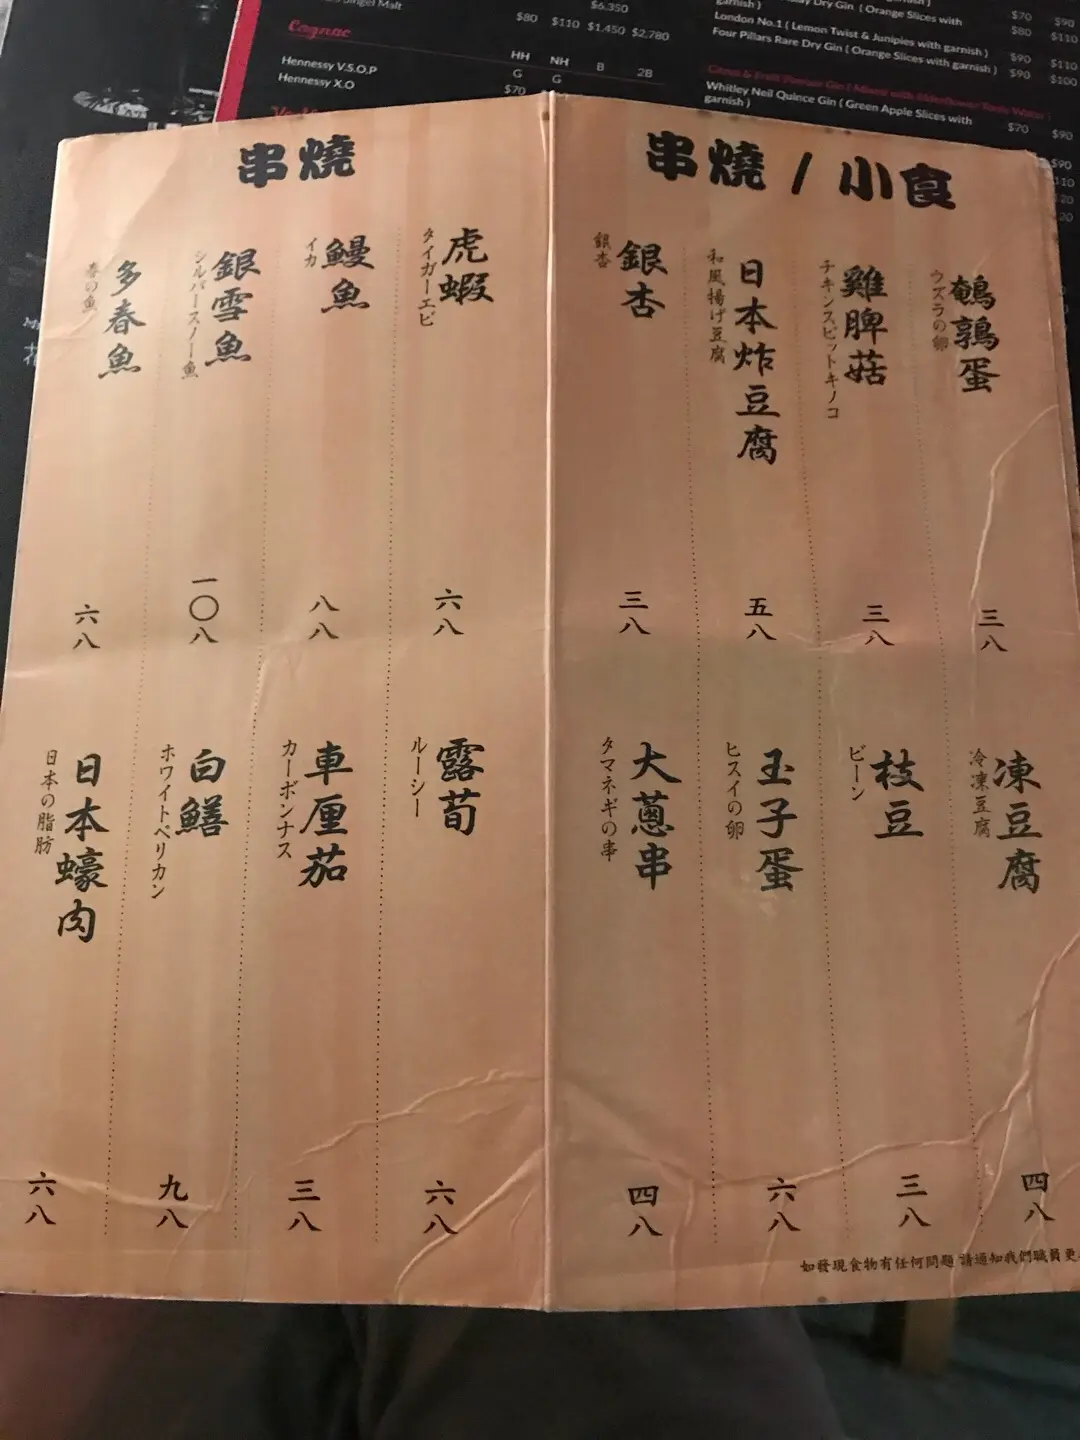 Singel Malt
$6.350
$80 $110 $1.450 $2,780
Cognac
HH NH B 2B
G G
Hennessy V.S.O.P
$70
Hennessy X.O
Dry Gin ( Orange Slices with
garnish )
$70 $90
London No.1 ( Lemon Twist & Junipies with garnish )
$80 $110
Four Pillars Rare Dry Gin ( Orange Slices with garnish )
$90 $110
$90 $100
Whitley Neil Quince Gin ( Green Apple Slices with
garnish )
$70 $90
$90
串燒
虎蝦
タイガーエビ
六八
鰻魚
イカ
八八
銀雪魚
シルバースノー魚
一〇八
多春魚
春の魚
六八
露荀
ルーシー
六八
車厘茄
カーボンナス
三八
白鱔
ホワイトペリカン
九八
日本蠔肉
日本の脂肪
六八
串燒 / 小食
鵪鶉蛋
ウズラの卵
三八
雞脾菇
チキンスピットキノコ
三八
日本炸豆腐
和風揚げ豆腐
五八
銀杏
銀杏
三八
凍豆腐
冷凍豆腐
四八
枝豆
ビーン
三八
玉子蛋
ヒスイの卵
六八
大蔥串
タマネギの串
四八
如發現食物有任何問題 請通知我們職員更